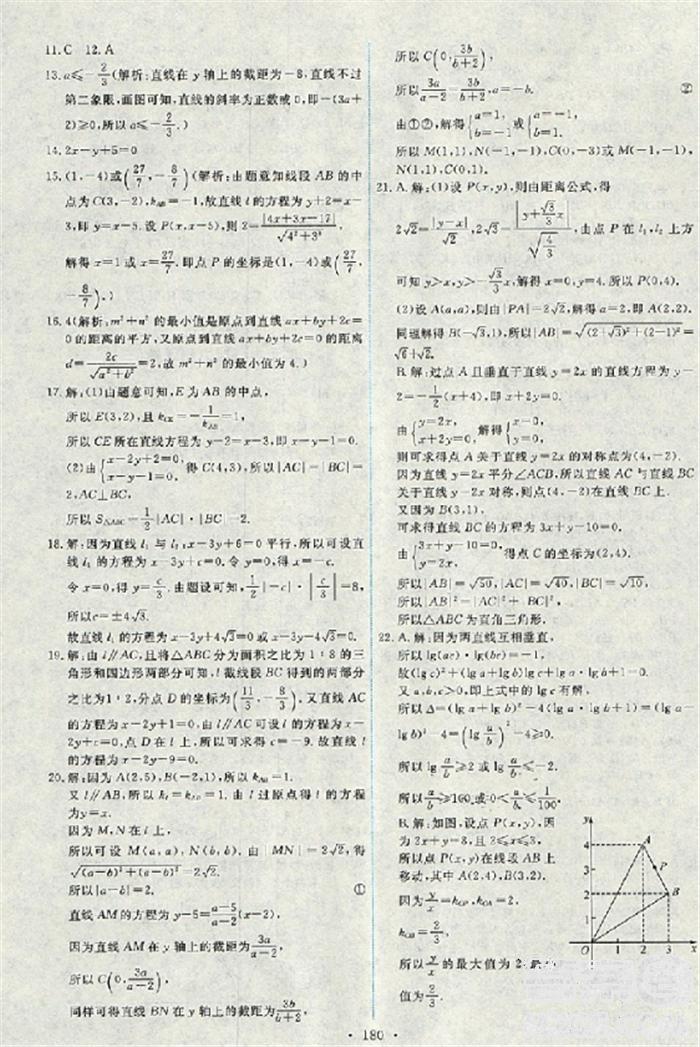 11.C 12.A
13.a≤-2/3(解析:直线在 y 轴上的截距为-8,直线不过
第二象限,画图可知,直线的斜率为正数或 0,即-(3a+
2)≥0,所以 a≤-2/3.)
14.2x-y+5=0
15.(1,-4)或(27/7,-8/7)(解析:由题意知线段 AB 的中
点为 C(3,-2),k_AB=-1,故直线 l 的方程为 y+2=x-
3,即 y=x-5.设 P(x,x-5),则 2=|4x+3x-17|/√(4²+3²),
解得 x=1 或 x=27/7.即点 P 的坐标是(1,-4)或(27/7,
-8/7).)
16.4(解析:m²+n² 的最小值是原点到直线 ax+by+2c=
0 的距离的平方,又原点到直线 ax+by+2c=0 的距离
d=2c/√(a²+b²)=2,故 m²+n² 的最小值为 4.)
17.解:(1)由题意可知,E 为 AB 的中点,
所以 E(3,2),且 k_CE=-1/k_AB=1,
所以 CE 所在直线方程为 y-2=x-3,即 x-y-1=0.
(2)由{x-2y+2=0, x-y-1=0, 得 C(4,3),所以|AC|=|BC|=
2,AC⊥BC,
所以 S△ABC=1/2|AC|·|BC|=2.
18.解:因为直线 l₁ 与 l₂:x-3y+6=0 平行,所以可设直
线 l₁ 的方程为 x-3y+c=0.令 y=0,得 x=-c.
令 x=0,得 y=c/3.由题设可知,1/2|-c|·|c/3|=8,
所以c=±4√3.
故直线 l₁ 的方程为 x-3y+4√3=0或 x-3y-4√3=0.
19.解:由 l∥AC,且将△ABC 分为面积之比为 1∶8 的三
角形和四边形两部分可知,l 截线段 BC 得到的两部分
之比为1∶2,分点 D 的坐标为(11/3,-8/3),又直线 AC
的方程为 x-2y+1=0,由 l∥AC 可设 l 的方程为 x-
2y+c=0,点 D 在 l 上,所以可求得 c=-9.故直线 l
的方程为 x-2y-9=0.
20.解:因为 A(2,5),B(-2,1),所以 k_AB=1.
又 l∥AB,所以 k_l=k_AB=1.由 l 过原点得 l 的方程
为y=x.
因为 M,N在 l 上,
所以可设 M(a,a),N(b,b).由|MN|=2√2,得
√((a-b)²+(a-b)²)=2√2.
所以|a-b|=2. ①
直线 AM的方程为 y-5=(a-5)/(a-2)(x-2),
因为直线 AM在 y 轴上的截距为3a/(a-2),
所以 C(0,3a/(a-2)),
同样可得直线 BN在 y 轴上的截距为3b/(b+2),
所以 C(0,3b/(b+2)),
所以3a/(a-2)=3b/(b+2),a=-b. ②
由①②,解得{a=1, b=-1 或{a=-1, b=1.
所以 M(1,1),N(-1,-1),C(0,-3)或 M(-1,-1),
N(1,1),C(0,1).
21.A.解:(1)设 P(x,y),则由距离公式,得
2√2=|y-x|/√2,2√3=|y+(√3/3)x|/√(4/3),由点 P 在 l₁,l₂ 上方
可知 y>x,y>-(√3/3)x,解得 x=0,y=4.所以 P(0,4).
(2)设 A(a,a),则由|PA|=2√2,解得 a=2,即 A(2,2).
同理解得 B(-√3,1),所以|AB|=√((2+√3)²+(2-1)²)=
√6+√2.
B.解:过点 A 且垂直于直线 y=2x 的直线方程为 y-
2=-1/2(x+4),即 x+2y=0.
由{y=2x, x+2y=0, 解得{x=0, y=0.
则可求得点 A 关于直线 y=2x 的对称点为(4,-2).
因为直线 y=2x 平分∠ACB,所以直线 AC 与直线 BC
关于直线 y=2x 对称,则点(4,-2)在直线 BC 上.
又因为 B(3,1),
可求得直线 BC 的方程为 3x+y-10=0.
由{3x+y-10=0, y=2x, 得点 C 的坐标为(2,4).
所以|AB|=√50,|AC|=√40,|BC|=√10,
所以|AB|²=|AC|²+|BC|²,
所以△ABC为直角三角形.
22.A.解:因为两直线互相垂直,
所以 lg(ac)·lg(bc)=-1,
故 lg²c+(lg a+lg b)lg c+lg a·lg b+1=0.
又 a,b,c>0,即上式中的 lg c 有解,
所以 Δ=(lg a+lg b)²-4(lg a·lg b+1)=(lg a-
lg b)²-4=(lg a/b)²-4≥0.
所以 lg a/b≥2 或 lg a/b≤-2.
所以a/b≥100 或 0<a/b≤1/100.
B.解:如图,设点 P(x,y),因
为 2x+y=8,且 2≤x≤3,
所以点 P(x,y)在线段 AB 上
移动,其中 A(2,4),B(3,2).
因为y/x=k_OP,k_OA=2,
k_OB=2/3,
所以y/x的最大值为 2,最
值为2/3.
y
4
3
2
1
O 1 2 3 x
A
P
B
· 180 ·